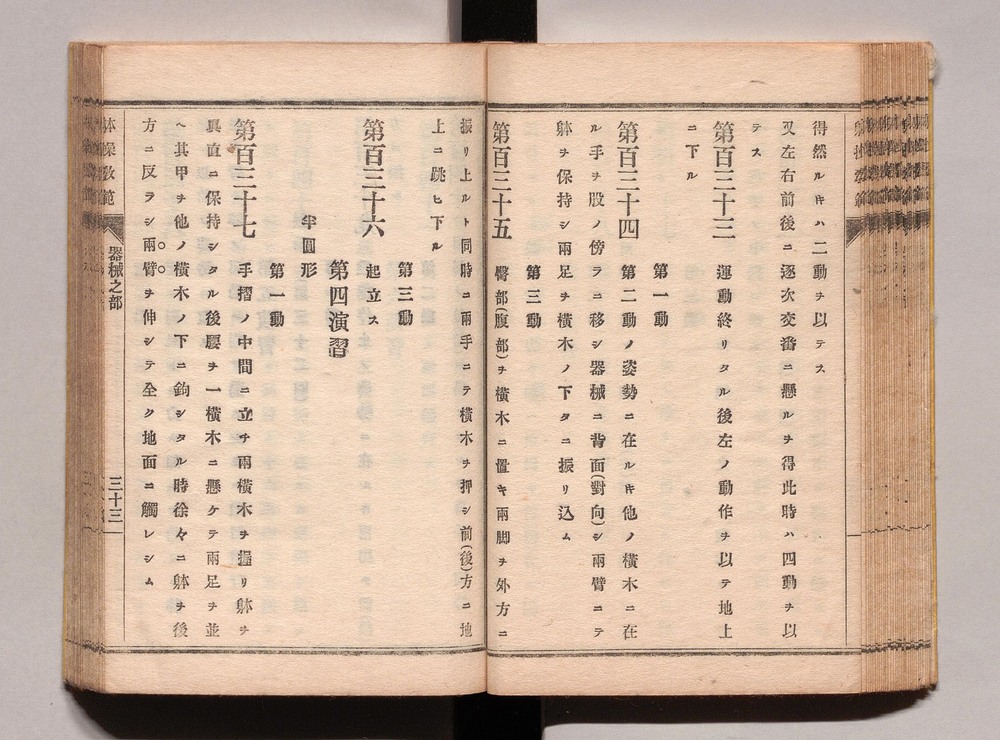 得然ルキハ二動ヲ以テス
又左右前後ニ逐次交番ニ懸ルヲ得此時ハ四動ヲ以
テス
第百三十三 運動終リタル後左ノ動作ヲ以テ地上
ニ下ル
第一動
第百三十四 第二動ノ姿勢ニ在ルキ他ノ横木ニ在
ル手ヲ股ノ傍ラニ移シ器械ニ背面(對向)シ兩臂ニテ
躰ヲ保持シ兩足ヲ横木ノ下タニ振リ込ム
第三動
第百三十五 臀部(腹部)ヲ横木ニ置キ兩脚ヲ外方ニ
振リ上ルト同時ニ兩手ニテ横木ヲ押シ前(後)方ニ地
上ニ跳ヒ下ル
第三動
第百三十六 起立ス
第四演習
半圓形
第一動
第百三十七 手摺ノ中間ニ立チ兩横木ヲ握リ躰ヲ
眞直ニ保持シタル後腰ヲ一横木ニ懸ケテ兩足ヲ並
ヘ其甲ヲ他ノ横木ノ下ニ鉤シタル時徐々ニ躰ヲ後
方ニ反ラシ兩臂ヲ伸シテ全ク地面ニ觸レシム
体操教範 器械之部 三十三